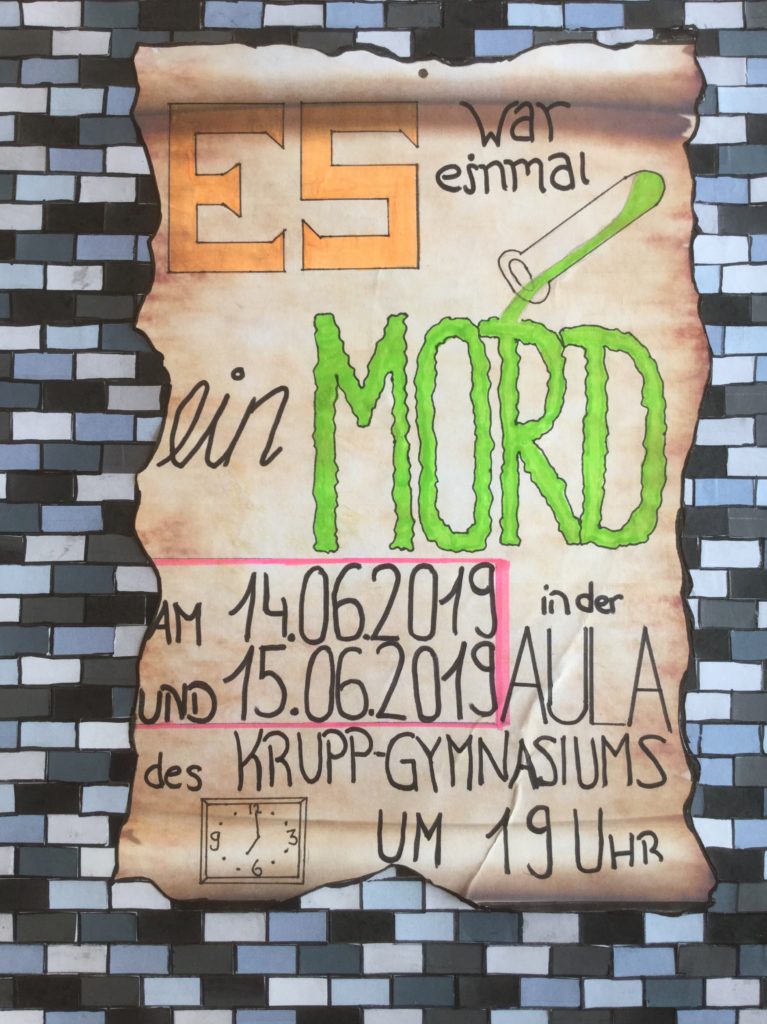 ES war
einmal
ein MORD
AM 14.06.2019 in der
UND 15.06.2019 AULA
des KRUPP-GYMNASIUMS
12
9 3
6
UM 19 UHR